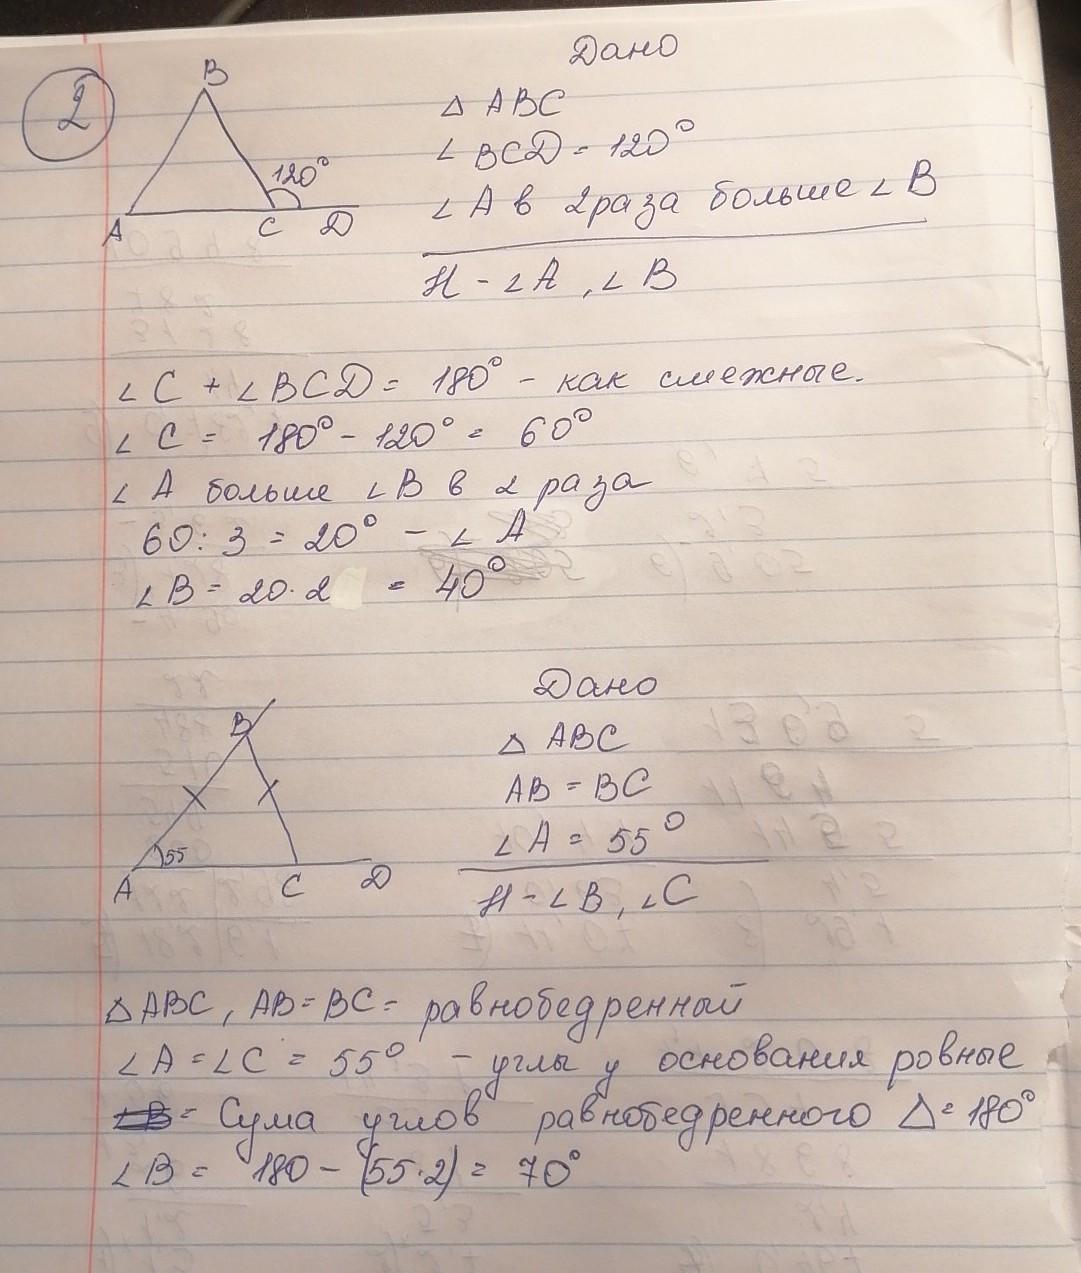 2
B
120°
A
C
D
Дано
△ ABC
∠ BCD = 120°
∠ A в 2 раза больше ∠ B
Н - ∠A , ∠ B
∠ C + ∠ BCD = 180° - как смежные.
∠ C = 180° - 120° = 60°
∠ A больше ∠ B в 2 раза
60 : 3 = 20° - ∠ A
∠ B = 20 · 2 = 40°
B
55
A
C
D
Дано
△ ABC
AB = BC
∠ A = 55°
Н - ∠ B , ∠ C
△ ABC , AB = BC = равнобедренный
∠ A = ∠ C = 55° - углы у основания ровные
∠B = Сума углов равнобедренного △ = 180°
∠ B = 180 - (55 · 2) = 70°